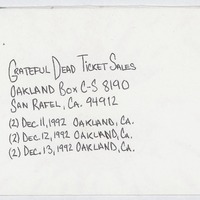 GRATEFUL DEAD TICKET SALES
OAKLAND BOX C-S 8190
SAN RAFEL, CA. 94912
(2) DEC. 11, 1992 OAKLAND, CA.
(2) DEC. 12, 1992 OAKLAND, CA.
(2) DEC. 13, 1992 OAKLAND, CA.